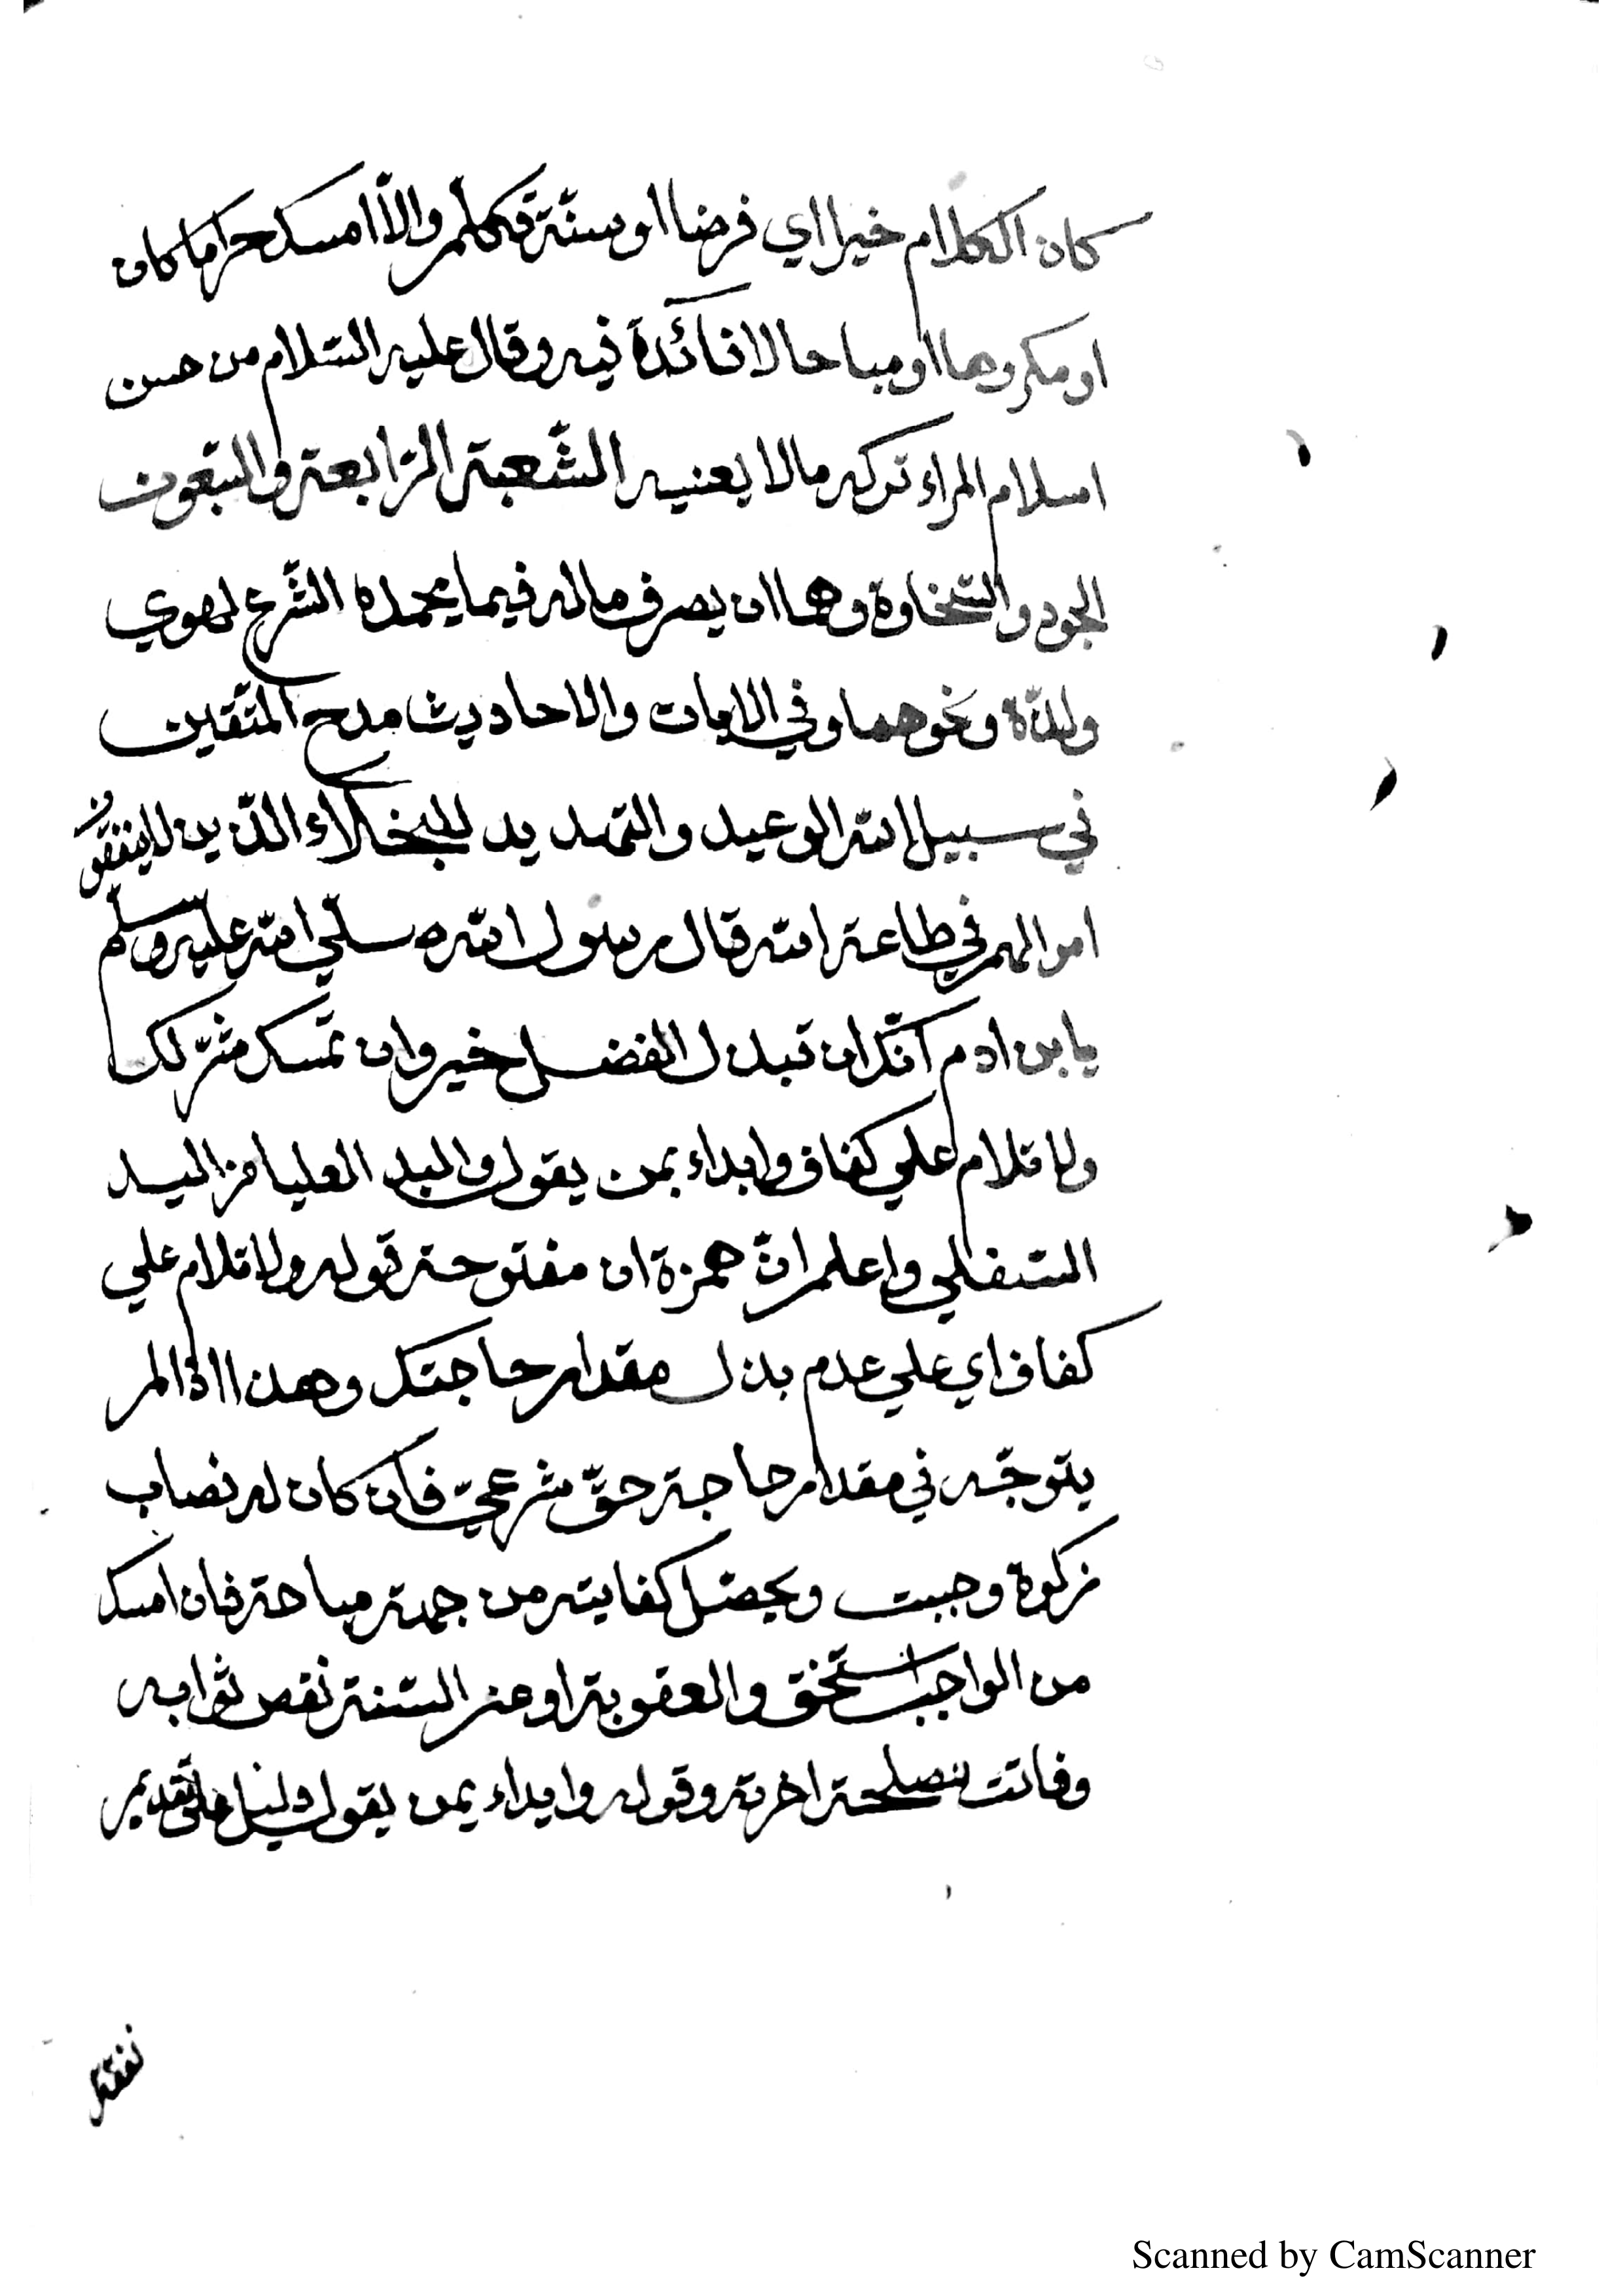 كان الكلام خيرا اي فرضا او سنّة فكلم والاّ امسك حراما كان
او مكروها او مباحا لا فائدة فيه وقال عليه السّلام من حسن
اسلام المراء تركه مالا يعنيه الشّعبة الرّابعة والسّبعون
الجود والسّخاوة وهما ان يصرف ماله فيما يحمده الشّرع لهوي
ولذّة ونحوهما وفي الايات والاحاديث مدح المنفقين
في سبيل الله الوعيد والتهديد للبخلاء الذين لا ينفقون
اموالهم في طاعة الله قال رسول الله صلّي الله عليه وسلّم
يا بن ادم انّك ان تبذل الفضل خير وان تمسك شرّ لك
ولا تلام علي كفاف وابداء بمن يقول واليد العليا من اليد
السّفلي واعلم انّ همزة ان مفتوحة قوله ولا تلام علي
كفاف اي علي عدم بذل مقدار حاجتك وهذا اذا لم
يتوجّه في مقدار حاجة حقّ شرعيّ فان كان له نصاب
زكوة وجبت ويحصّل كفايته من جهة مباحة فان امسك
من الواجب استحق والعقوبة او من السّنة نقص ثوابه
وفاتت مصلحة اخرته وقوله وابداء بمن يقول علي تقدير
Scanned by CamScanner